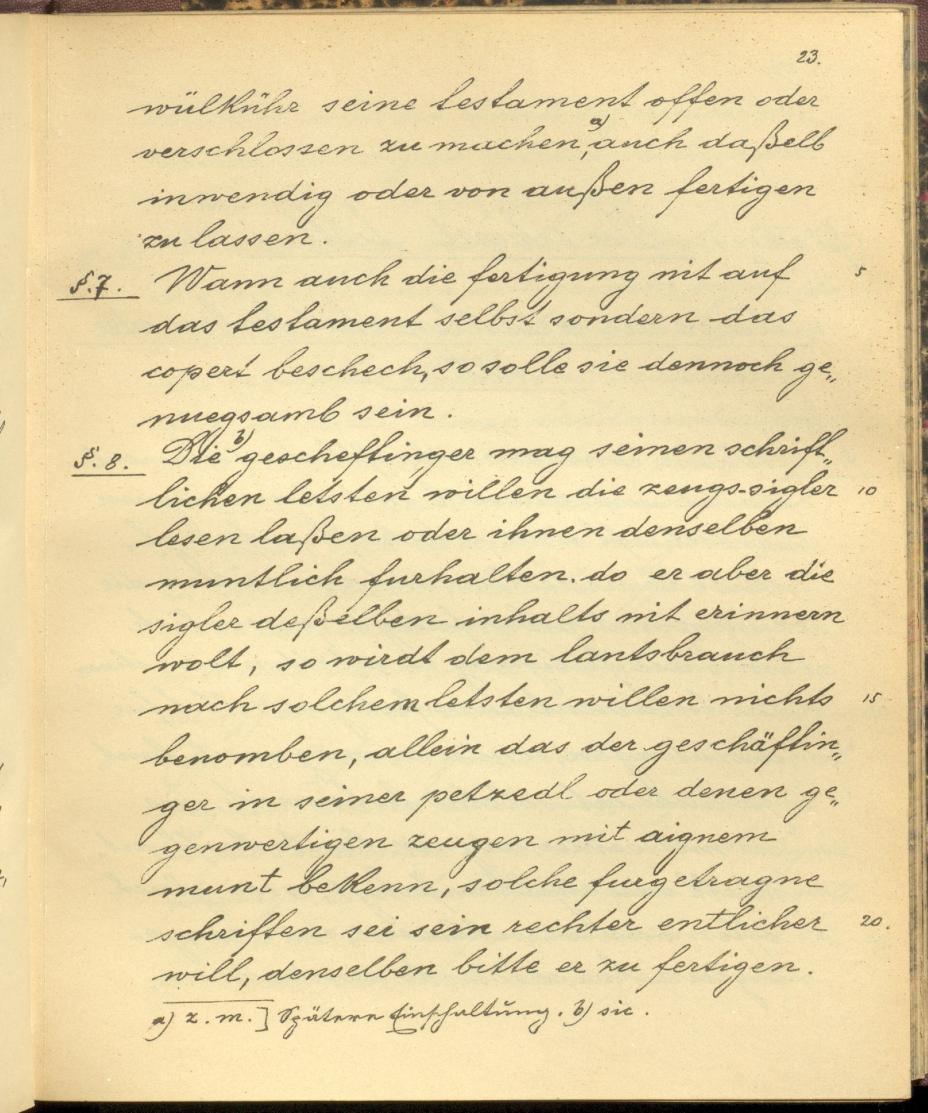 23.
wülkühr seine testament offen oder
verschlossen zu machen,a) auch daßelb
inwendig oder von außen fertigen
zu lassen.
§.7. Wann auch die fertigung nit auf 5
das testament selbst sondern das
copert beschech, so solle sie dennoch ge„
nuegsamb sein.
§.8. Die b) gescheftinger mag seinen schrift„
lichen letsten willen die zeugs-sigler 10
lesen laßen oder ihnen denselben
muntlich furhalten. do er aber die
sigler deßelben inhalts nit erinnern
wolt, so wirdt dem lantsbrauch
nach solchem letsten willen nichts 15
benomben, allein das der geschäftin„
ger in seiner petzedl oder denen ge„
genwertigen zeugen mit aignem
munt bekenn, solche furgetragne
schriften sei sein rechter entlicher 20.
will, denselben bitte er zu fertigen.
a) z. m.] Spätere Einschaltung. b) sic.